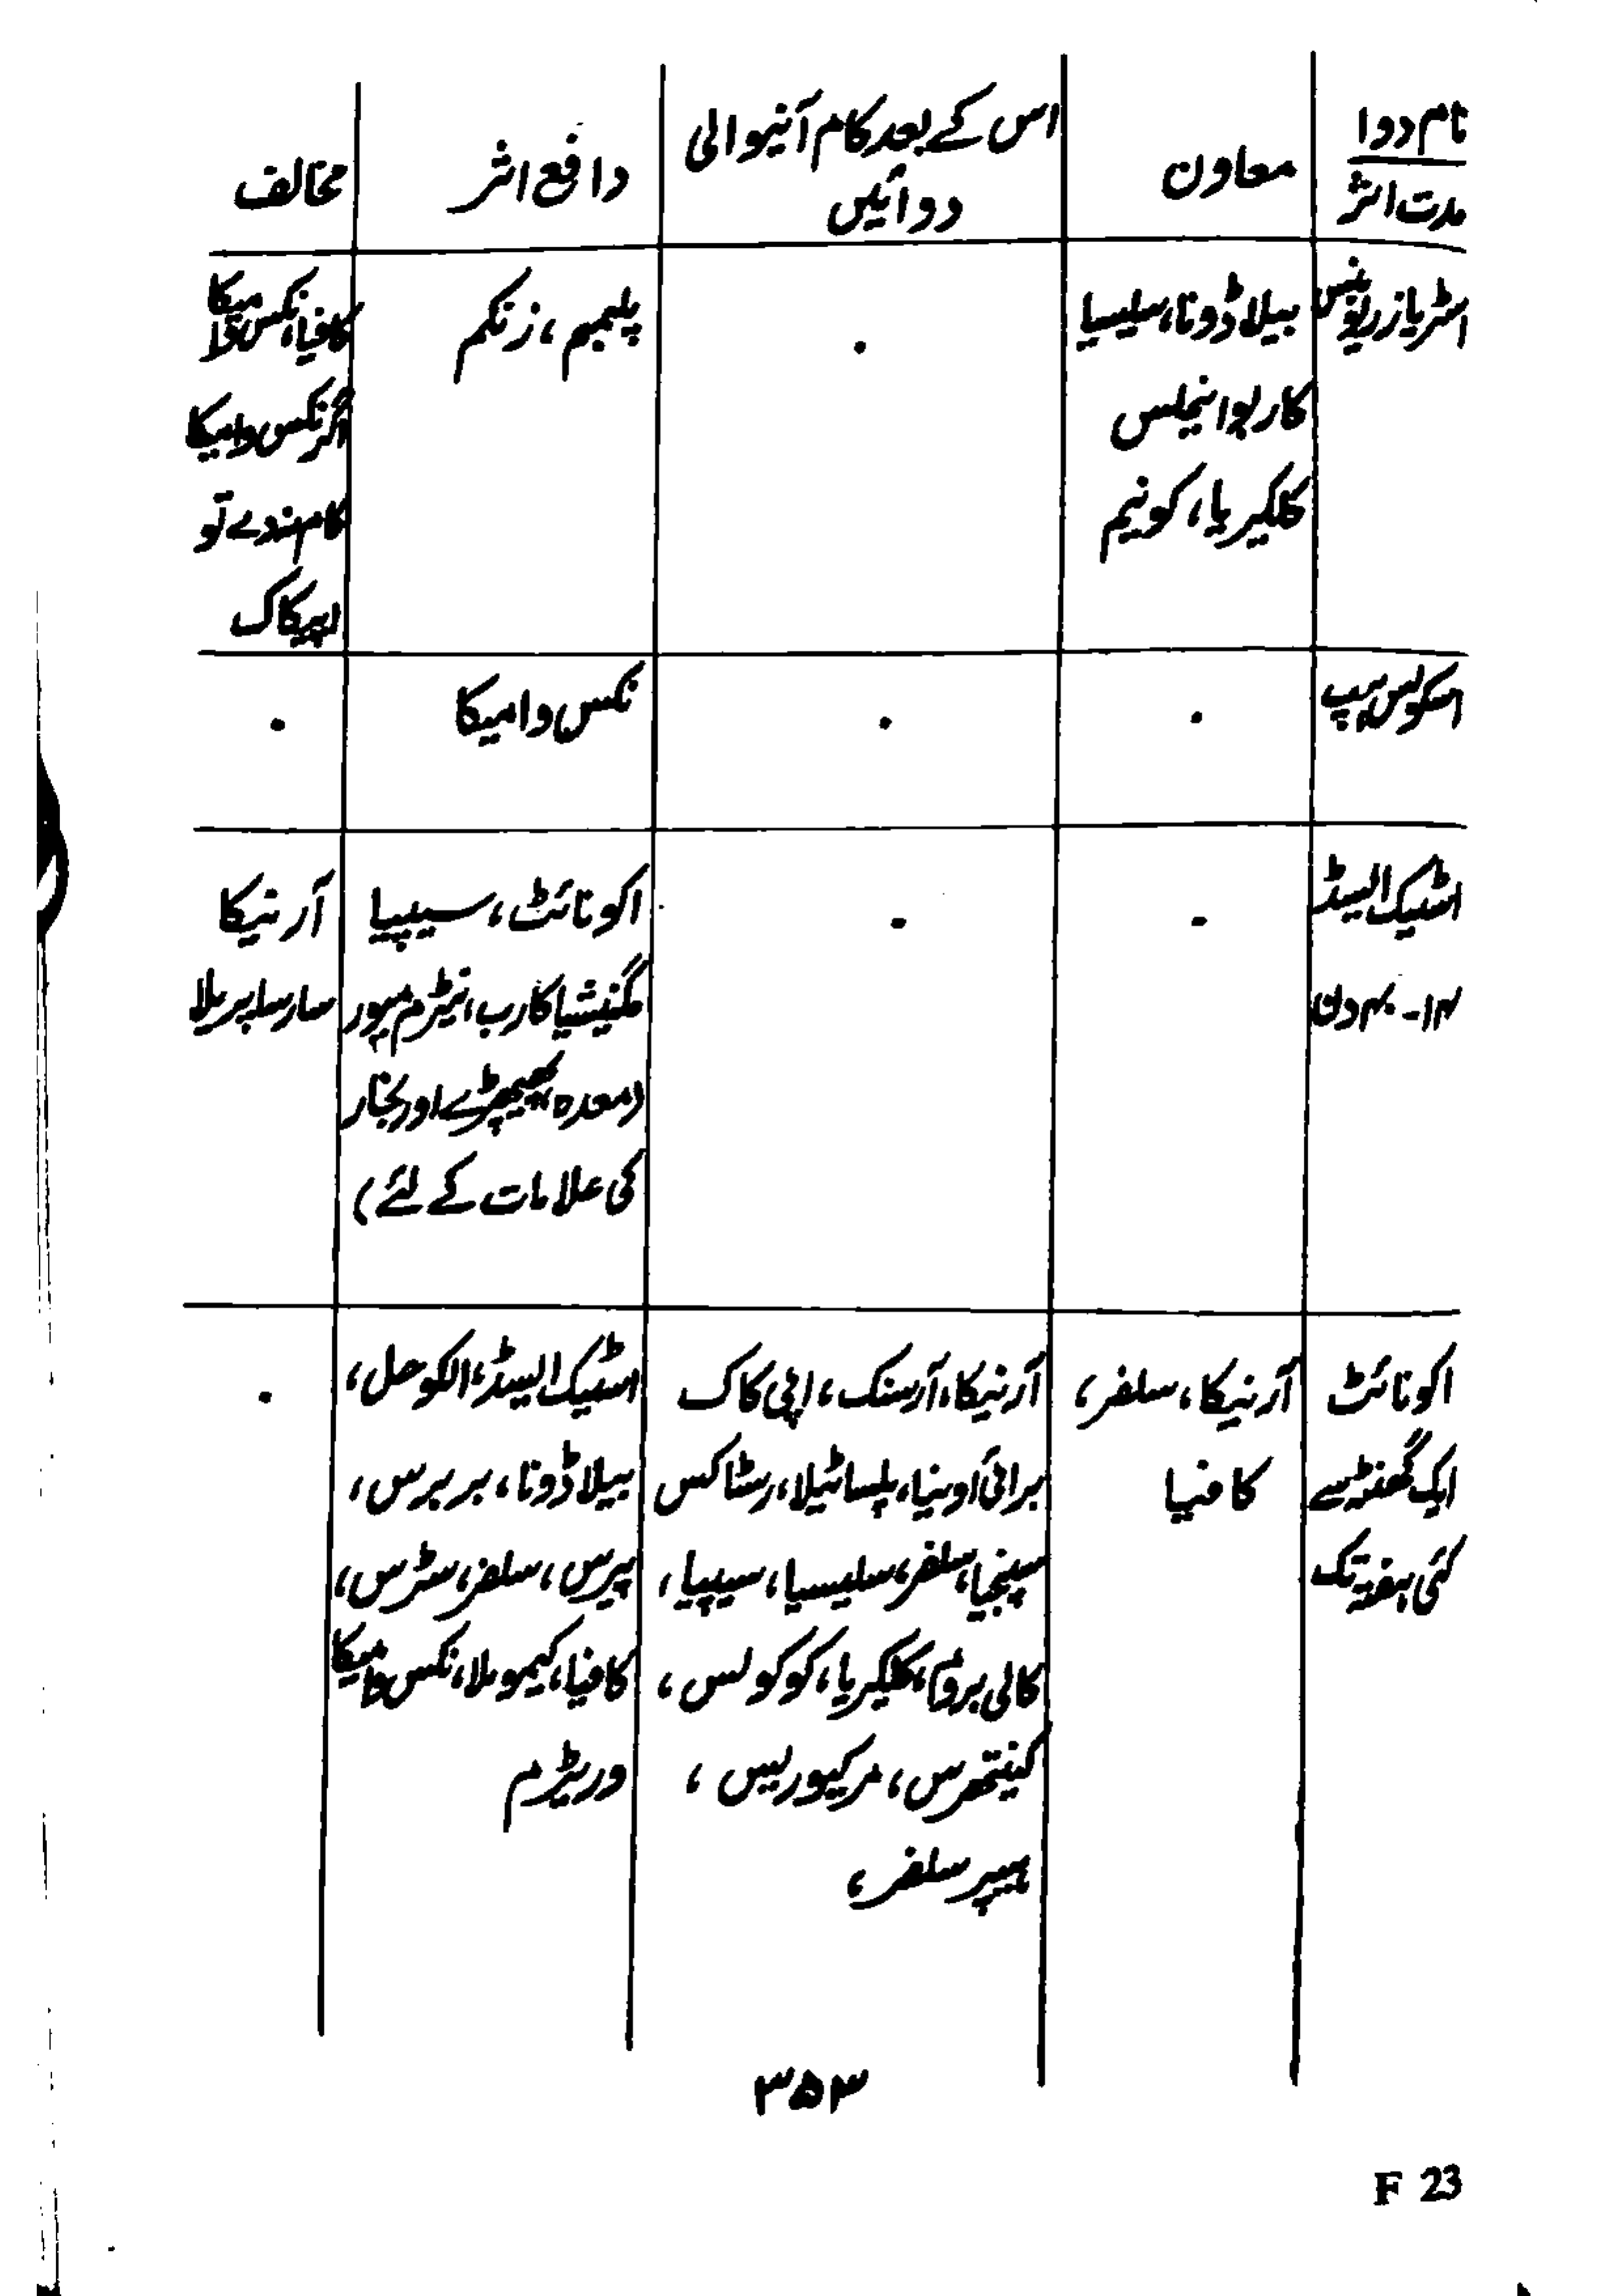 نام دوا
مدت اثر
معاون
اس کے بعد کام آنیوالی
دوائیں
دافع اثر
مخالف
اسٹریاز ریوبنس
بیلاڈونا، سلیسیا
کاربوانیملس
کلکیریا، کونیم
۰
پلمبم، زنکم
کافیا، نکس وامیکا
اگر نکس وامیکا
کام نہ دے تو
اپیکاک
اسکولس ہپ
۰
۰
نکس وامیکا
۰
اسٹیک ایسڈ
۱۴-۴۰ دن
۰
۰
اکونائٹ، سیپیا
مگنیشیا کارب، نیٹرم میور
(معدہ، پھیپھڑے اور بخار
کی علامات کے لئے)
آرنیکا
سارساپریلا
اکونائٹ
ایک گھنٹہ سے
کئی ہفتہ تک
آرنیکا، سلفر،
کافیا
آرنیکا، آرسنک، اپی کاک
برائی اونیا، پلساٹیلا، رسٹاکس
سپنجیا، سلفر، سلیسیا، سیپیا،
کالی بروم، کلکیریا، کوکولس،
کینتھرس، مرکیوریس،
ہیپر سلفر،
اسٹیک ایسڈ، الکوحل،
بیلاڈونا، بربرس،
پیرس، سلفر، سٹرس،
کافیا، کیموملا، نکس وامیکا
وریٹرم
۰
۳۵۳
F 23